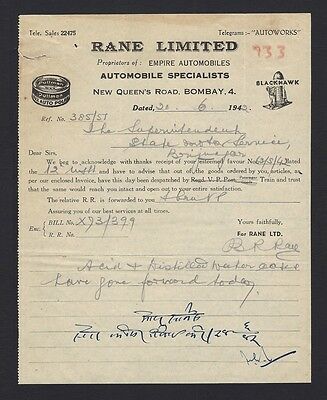 Tele. Sales 22475
Telegrams:- "AUTOWORKS"
RANE LIMITED
Proprietors of: EMPIRE AUTOMOBILES
933
AUTOMOBILE SPECIALISTS
NEW QUEEN'S ROAD, BOMBAY, 4.
BLACKHAWK
Dated, 20 6 194
Ref. No. 385/ST
The Superintendent
State Motor Service,
Dear Sirs,
We beg to acknowledge with thanks receipt of your esteemed favour No
dated the 12 and have to advise that out of the goods ordered by you, articles, as
per our enclosed Invoice, have this day been despatched by Regd. V. P. Post, Train and trust
the same will reach you intact and open out to your entire satisfaction.
The relative R. R. is forwarded to you
Assuring you of our best services at all times.
Enc: BILL No. X93/399
R. R. No.
Yours faithfully.
For RANE LTD.
Acid & Distilled water
have gone forward today.